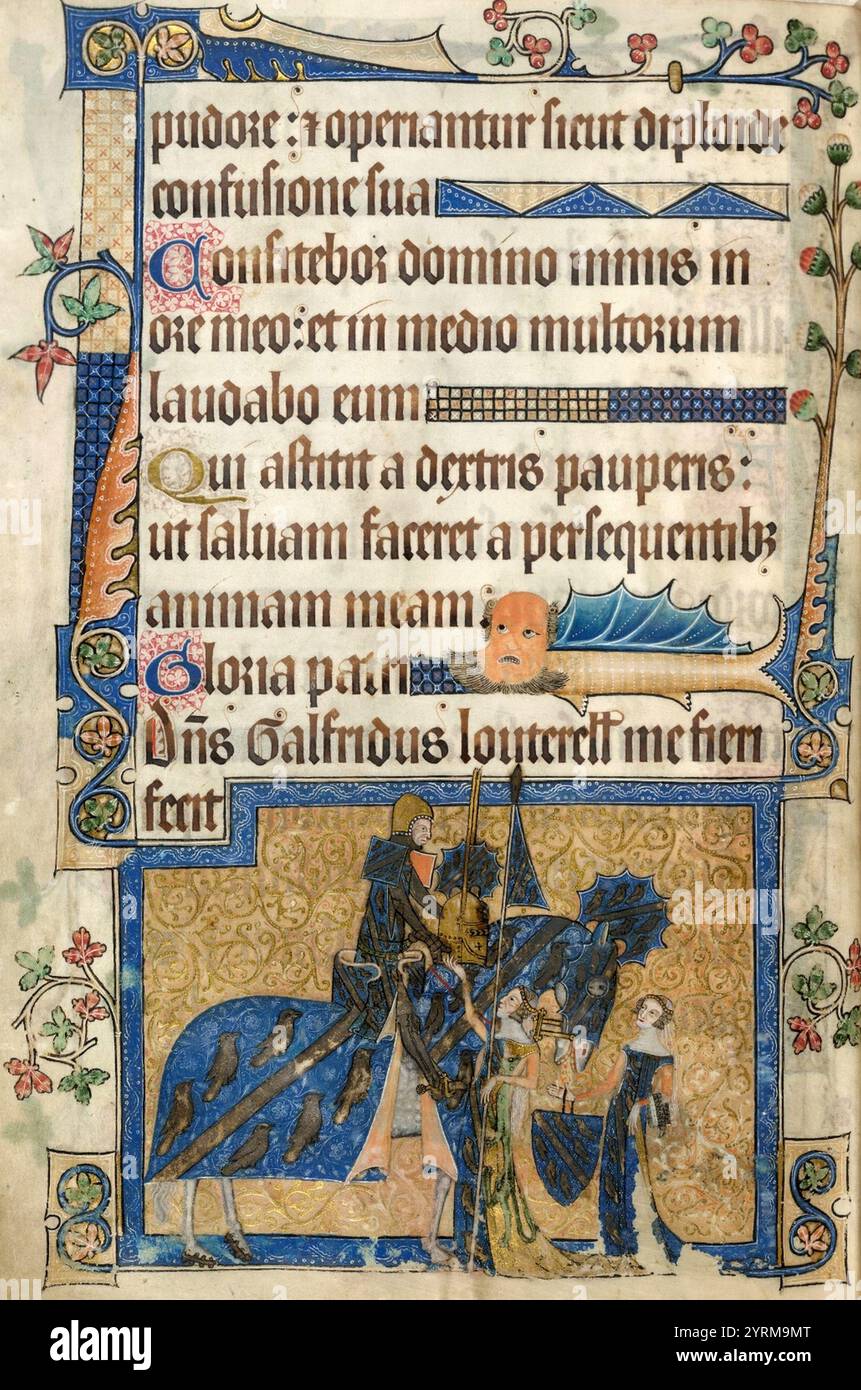 pudore: ⁊ operiantur sicut diploide
confusione sua
Confitebor domino nimis in
ore meo: et in medio multorum
laudabo eum
Qui astitit a dextris pauperis:
ut saluam faceret a persequentibꝫ
animam meam.
Gloria patri
Dn̄s Galfridus louterell me fieri
fecit
alamy
Image ID: 2YRM9MT
www.alamy.com